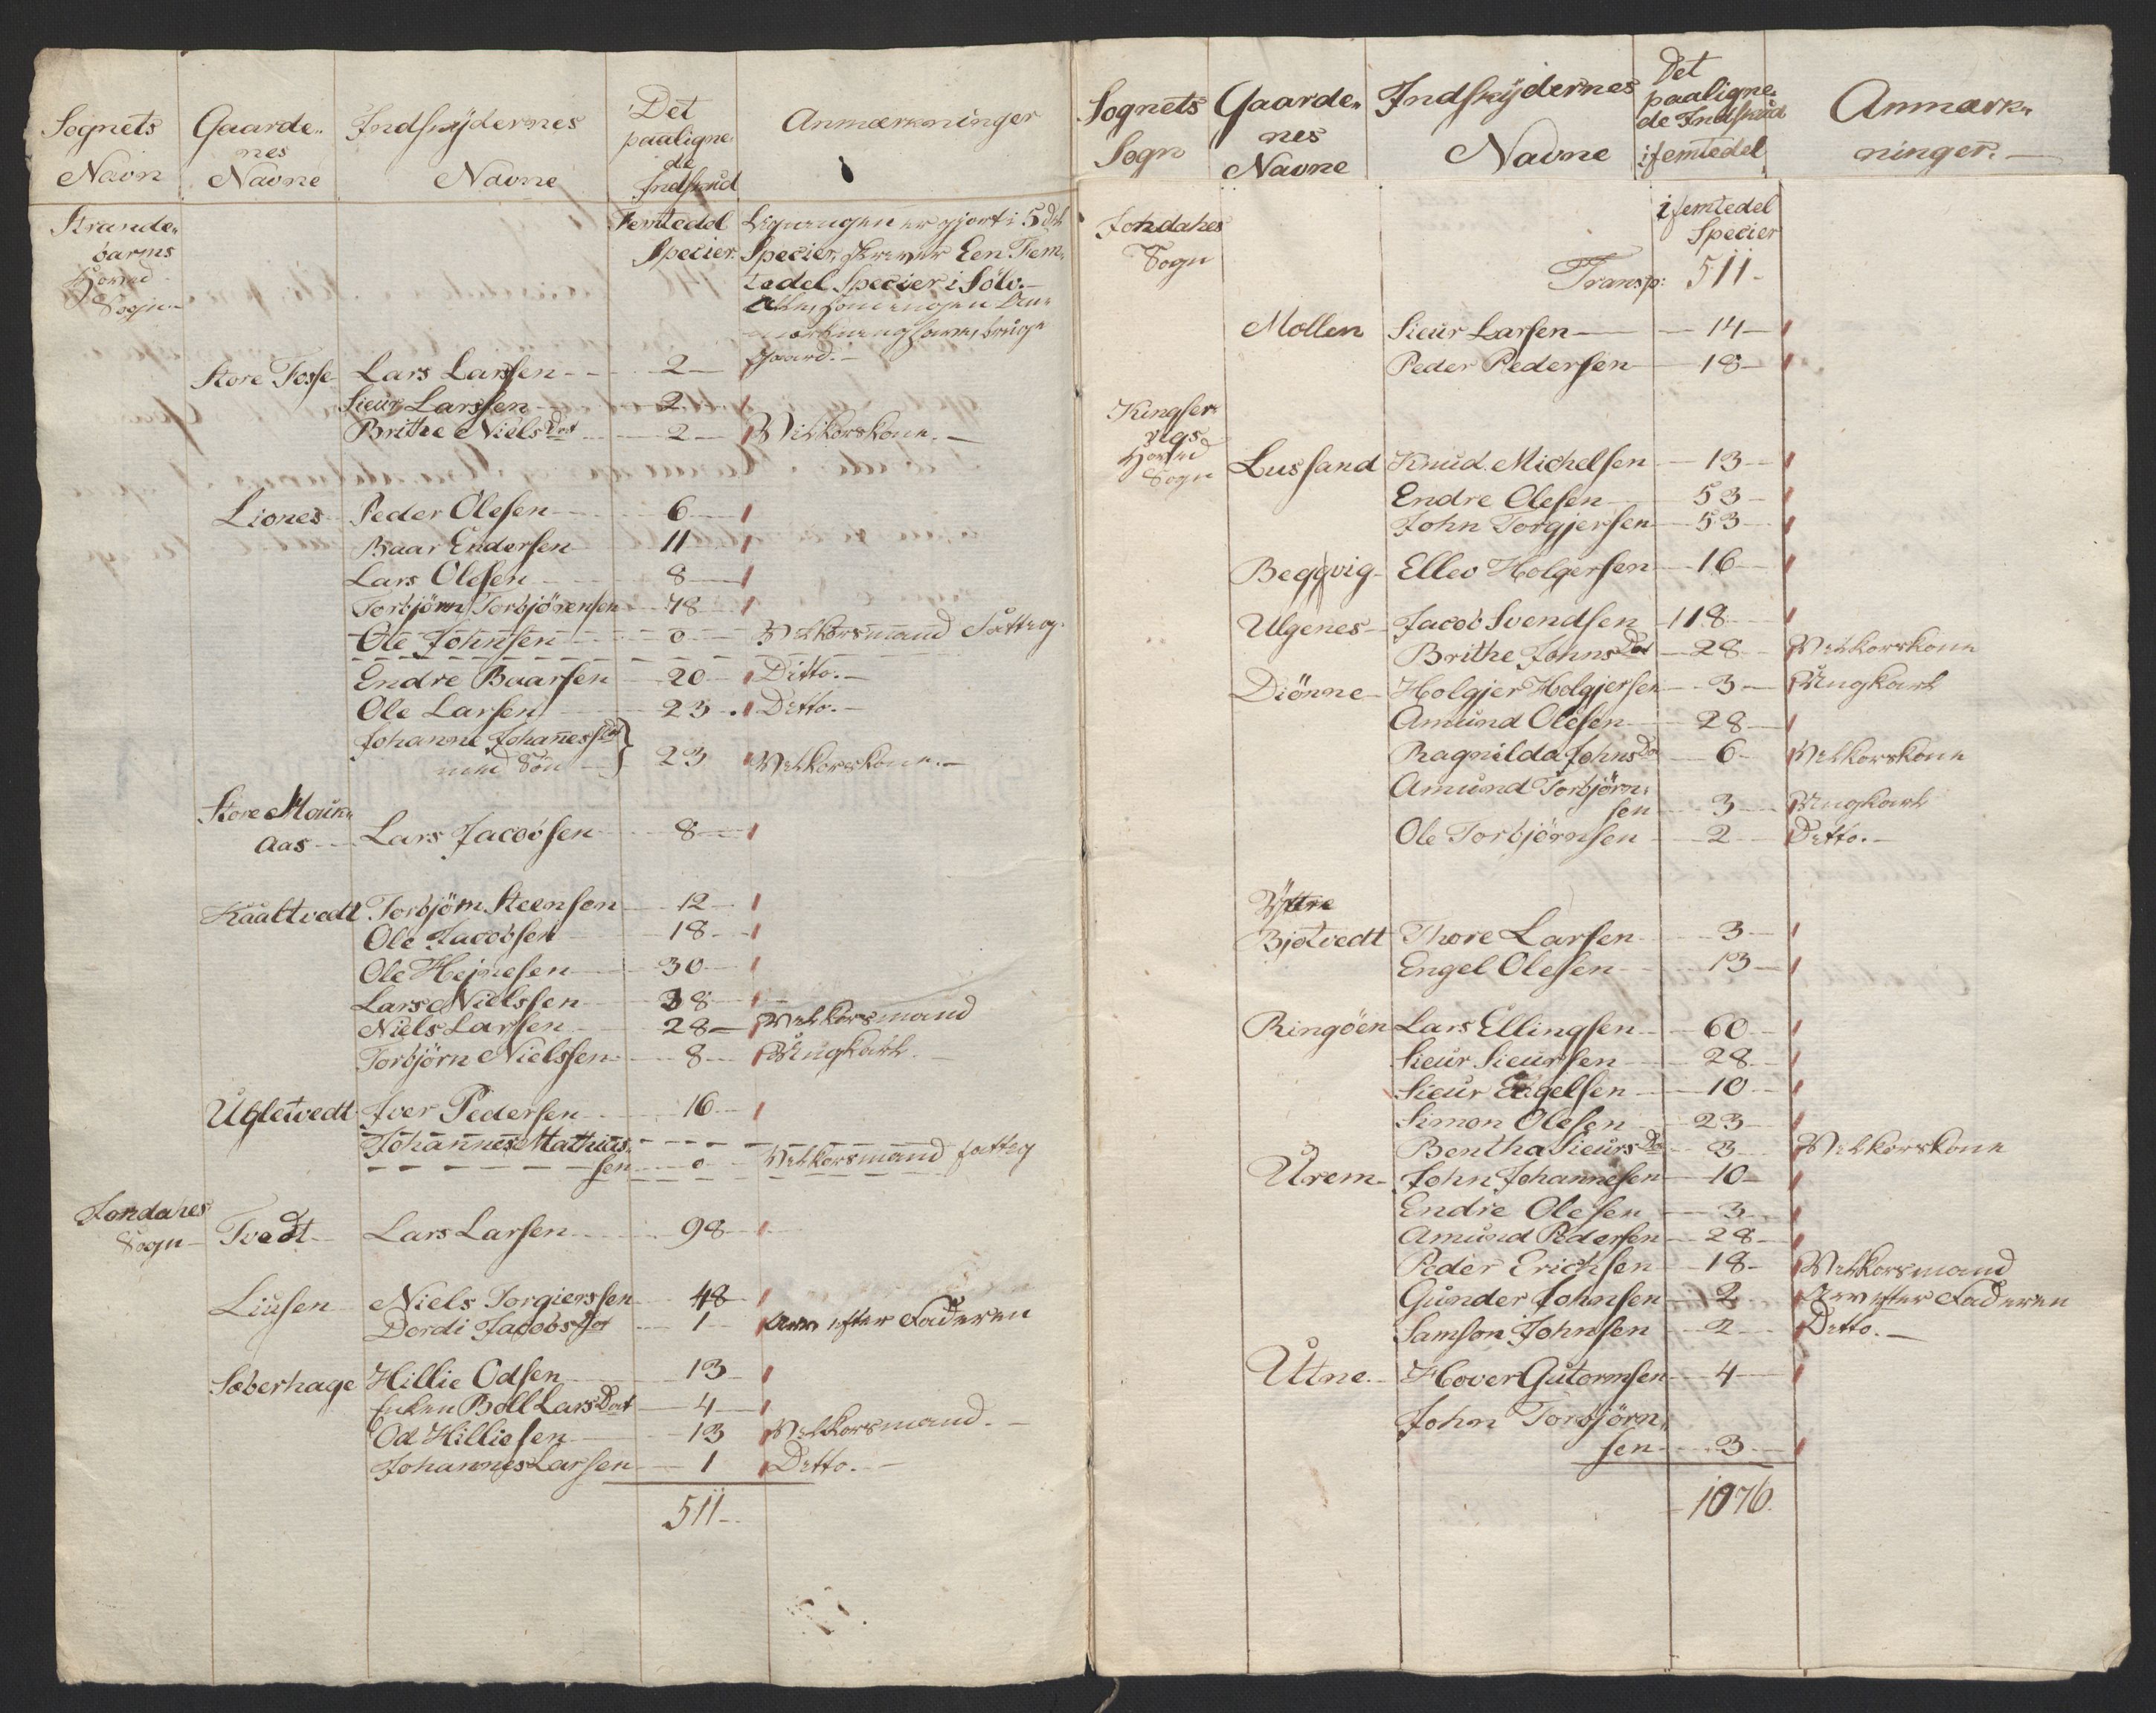 Sognets Navn | Gaarde„nes Navne | Indskydernes Navne | Det paaligne„de Indskud | Anmærkninger
Strande„barms Hoved Sogn | | | Femtedel Specier | Ligningen er gjort i 5 del
Specier, skrever Een Fem„
tedel Specier i Sölv.
gaard.
Store Tosse | Lars Larssen | 2
Sieur Larssen | 2
Brithe Niels Dot | 2 | Vilkorskone.
Liones | Peder Olesen | 6
Baar Endersen | 11
Lars Olesen | 8
Torbjörn Torbjörensen | 48
Ole Johnsen | 0 | Vilkorsmand Fattig.
Endre Baarsen | 20 | Ditto.
Ole Larsen | 23 | Ditto.
Johanne Johanes Dot
med Sön | 23 | Vilkorskone.
Store Mouk„
aas | Lars Jacobsen | 8
Kaaltvedt | Torbjörn Steensen | 12
Ole Jacobsen | 18
Ole Hejnesen | 30
Lars Nielssen | 38
Niels Larsen | 28 | Vilkorsmand
Torbjörn Nielssen | 8 | Ungkarl.
Ugletvedt | Iver Pedersen | 16
Johannes Mathias„
sen | 0 | Vilkorsmand fattig
Jondahls
Sogn | Tvedt | Lars Larsen | 98
Liusen | Niels Torgierssen | 48
Dordi Jacobs Dot | 1 | Arv efter Faderen
Sæberhage | Hillie Odsen | 13
Enken Boll Lars Dot | 4
Od Hilliesen | 13 | Vilkorsmand.
Johannes Larsen | 1 | Ditto.
511
Sognets Sogn | Gaarde„nes Navne | Indskydernes Navne | Det paaligne„de Indskud i femtedel | Anmærk„ninger.
Jondahls
Sogn | | | i femtedel
Specier
Transp: 511
Mollen | Sieur Larsen | 14
Peder Pedersen | 18
Kingser„
vigs
Hoved
Sogn | Lussand | Knud Michelsen | 13
Endre Olesen | 53
John Torgjersen | 53
Beggvig | Ellev Holgersen | 16
Ulgenes | Jacob Svendsen | 118
Brithe Johns Dot | 28 | Vilkorskone
Diönne | Holgjer Holgjersen | 3 | Ungkarl
Amund Olesen | 28
Ragnilda Johns Do | 6 | Vilkorskone
Amund Torbjörn„
sen | 3 | Ungkarl
Ole Torbjörnsen | 2 | Ditto.
Yttre
Bjotvedt | Thore Larsen | 3
Engel Olesen | 13
Ringöen | Lars Ellingsen | 60
Sieur Sieursen | 28
Sieur Engelsen | 10
Simon Olesen | 23
Bentha Sieurs Do | 3 | Vilkorskone
Urem | John Johannesen | 10
Endre Olesen | 3
Amund Pedersen | 28
Peder Erichsen | 18 | Vilkorsmand
Gunder Johnsen | 2 | Arv efter Faderen
Samson Johnsen | 2 | Ditto.
Utne | Hover Gutormsen | 4
John Torbjörn„
sen | 3
1076.